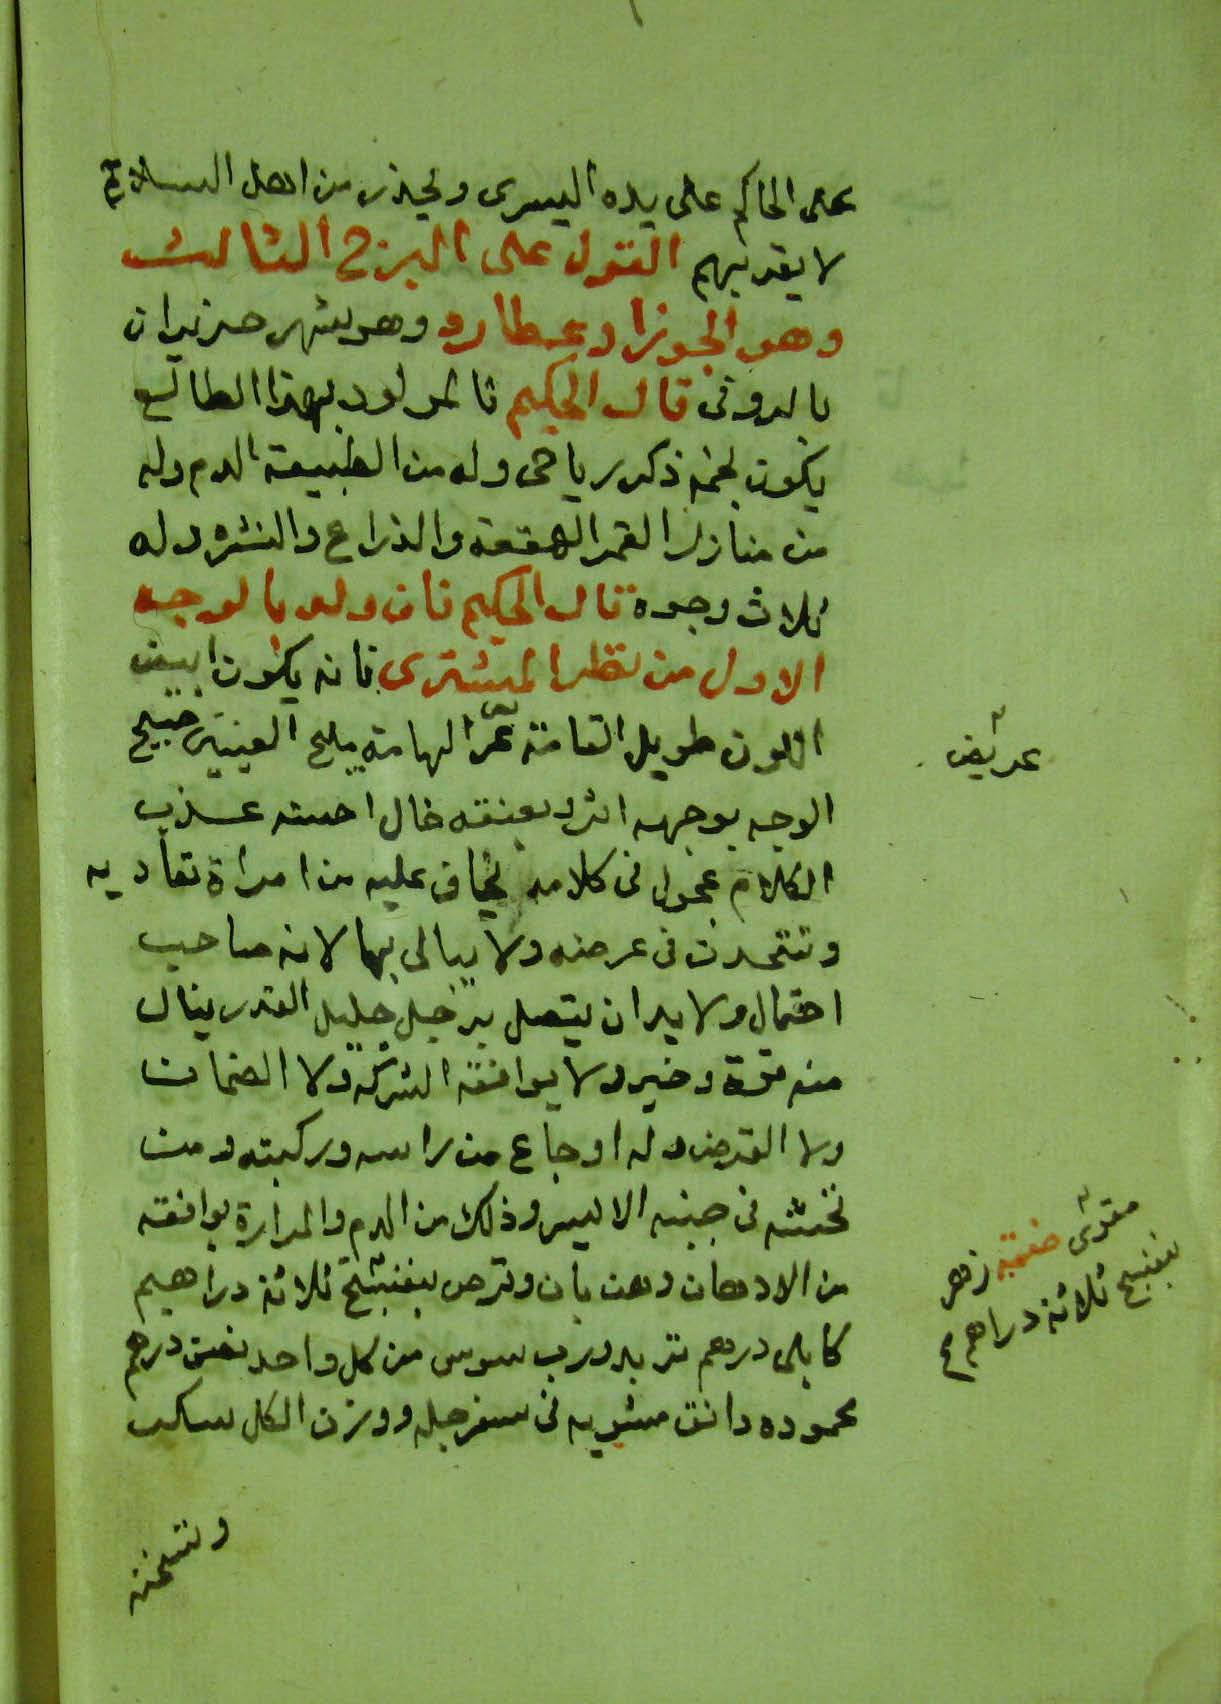 على الحاكم على يده اليسرى وليحذر من اهل السلاح
لا يقربهم القول على البرج الثالث
وهو الجوزا وعطارد وهو شهر حزيران
بالرومى قال الحكيم فالمولود بهذا الطالع
يكون نجمه ذكر رياحى وله من الطبيعة الدم وله
من منازل القمر الهقعة والذراع والنثره وله
ثلاث وجوه قال الحكيم فان ولد بالوجه
الاول من نظر المشترى فانه يكون ابيض
اللون طويل القامة الهامة مليح العينين صبيح
الوجه بوجهه اثر وبعنقه خال احسنه عذب
الكلام عجول فى كلامه يخاف عليه من امراة تعاديه
وتتحدث فى عرضه ولا يبالى بها لانه صاحب
احتمال ولا بد ان يتصل برجل جليل القدر ينال
منه قوة وخير ولا يوافقه الشركة ولا الضمان
ولا القرض وله اوجاع من راسه وركبته ومن
تحته فى جنبه الايسر وذلك من الدم والمرارة يوافقه
من الادهان دهن بان وقرص بنفسج ثلاثة دراهم
كابلى درهم تربد ورب سوس من كل واحد نصف درهم
محموده دانق مشويه فى سفرجله ووزن الكل سكر
عريض
مقوى صفته زهر
بنفسج ثلاثة دراهم